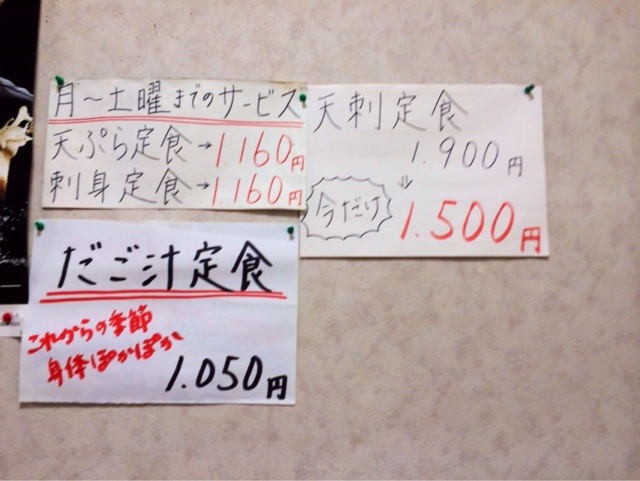 月〜土曜までのサービス
天ぷら定食→1.160円
刺身定食→1.160円
天刺定食
1.900円
⇓
今だけ
1.500円
だご汁定食
これからの季節
身体ぽかぽか
1.050円